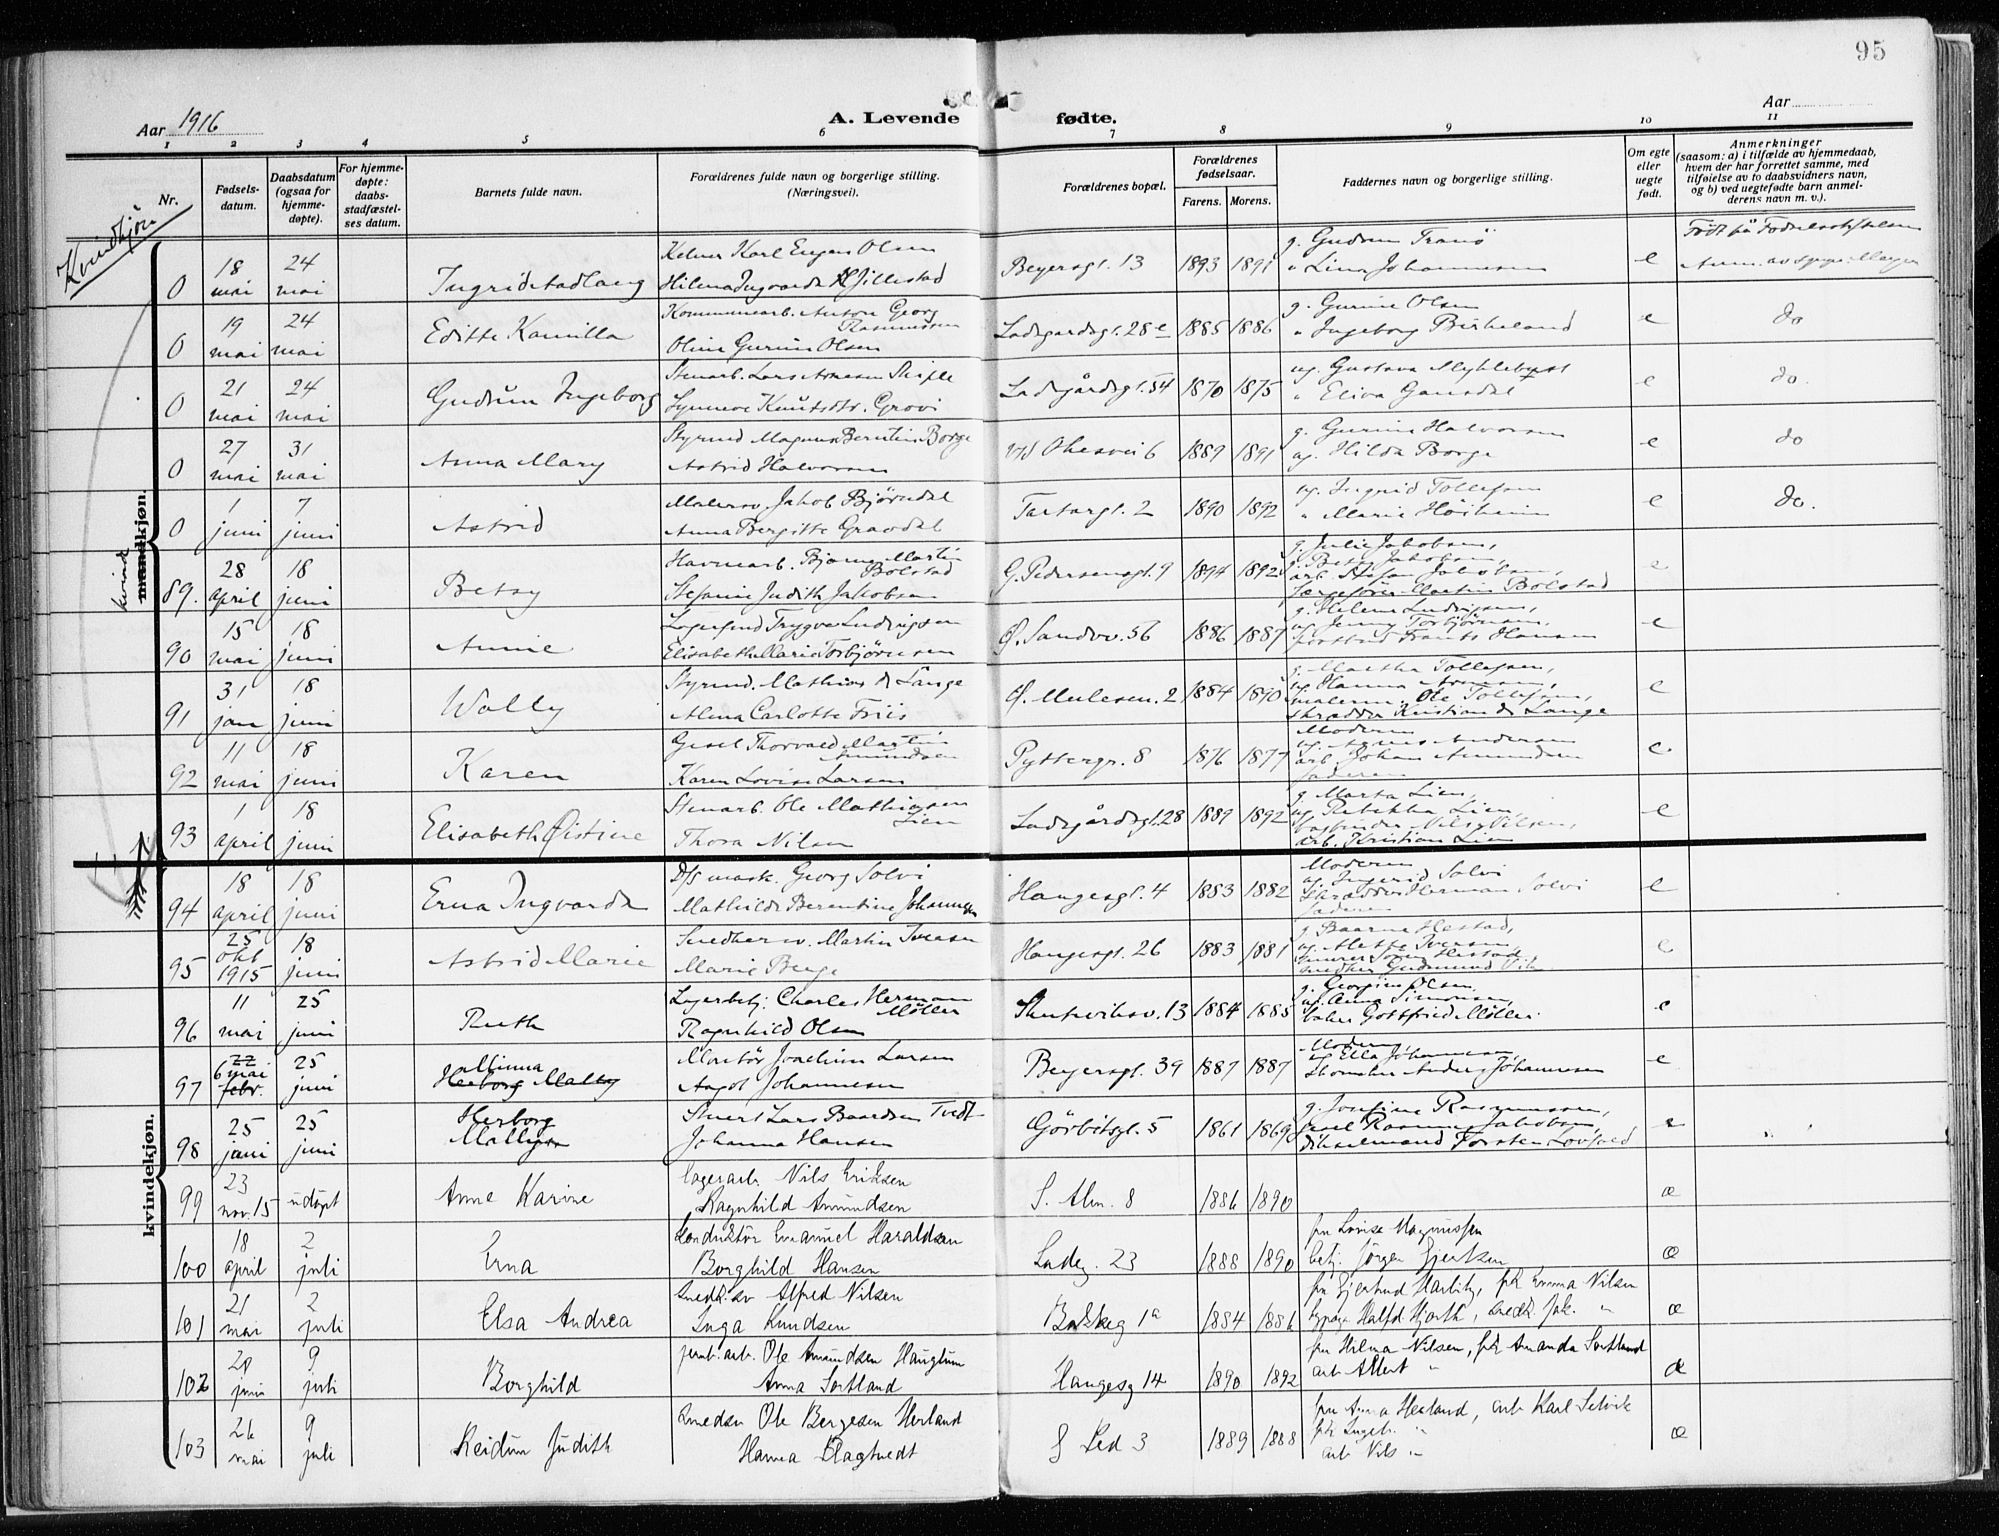 95
Aar 1916
A. Levende fødte.
Aar
1 2 3 4 5 6 7 8 9 10 11
Nr.
Fødsels-
datum.
Daabsdatum
(ogsaa for
hjemme-
døpte).
For hjemme-
døpte:
daabs-
stadfæstel-
ses datum.
Barnets fulde navn.
Forældrenes fulde navn og borgerlige stilling.
(Næringsvei).
Forældrenes bopæl.
Forældrenes
fødselsaar.
Farens. Morens.
Faddernes navn og borgerlige stilling.
Om egte
eller
uegte
født.
Anmerkninger
(saasom: a) i tilfælde av hjemmedaab,
hvem der har forrettet samme, med
tilføielse av to daabsvidners navn,
og b) ved uegtefødte barn anmel-
derens navn m. v.).
Kvindkjøn
kvinde
mandkjøn.
kvindekjøn.
0 18 mai 24 mai Ingrid
Kelner Karl Eugen Olsen
Beyersgt. 13 1893 1891
g. Gudrun Tranø
" Lina Johannesen
e
Født på Fødselsstiftelsen
0 19 mai 24 mai Editte Kamilla
Kommunearb. Anton Georg
Rasmussen
Oline Gurine Olsen
Ladegårdsgt. 28 e 1885 1886
g. Gurine Olsen
" Ingeborg Birkeland
e do
0 21 mai 24 mai Gudrun Ingeborg
Stenarb. Lars
Synneve Knutsdtr. Grovi
Ladegårdsgt. 54 1870 1875
ug. Gustava Myklebust
" Eliva
e do.
0 27 mai 31 mai Anna Mary
Styrmd Magnus Berntin Borge
Astrid Halvorsen
1889 1891
g. Gurine Halvorsen
ug. Hilda Borge
e do
0 1 juni 7 juni Astrid
Malersv Jakob Bjørndal
Anna Bergitte Gravdal
Tartargt. 2 1890 1892
ug. Ingrid Tollefsen
" Marie Høiheim
e do.
89. 28 april 18 juni Betsy
Havnearb. Bjarne Martin
Bolstad
Stefanie Judith Jakobsen
G. Pedersensgt. 9 1894 1892
g. Julie Jakobsen,
g. Betsy Jakobsen,
arb. Stefan Jakobsen,
Færgefører Martin Bolstad
e
90 15 mai 18 juni Annie
Trygve Ludvigsen
Elisabeth Marie Torbjørnsen
Ø. Sandv. 56 1886 1887
g. Helene Ludvigsen,
ug. Jenny Torbjørnsen,
Frants Hansen
e
91 31 jan 18 juni Wally
Styrmd. Mathias d. Lange
Alma Carlotte Friis
Ø. Mulesm. 2 1884 1890
g. Martha Tollefsen,
ug. Hanna
malerm. Ole Tollefsen,
skrædder Kristian d. Lange
e
92 11 mai 18 juni Karen
Gesel Thorvald Martin
Amundsen
Karen Lovise Larsen
Pyttergr. 8 1876 1877
Moderen
ug. Agnes Andersen
arb. Johan Amundsen
Faderen
e
93 1 april 18 juni Elisabeth Øistine
Stenarb. Ole Mathiasen
Lien
Thora Nilsen
Ladegårdsgt. 28 1889 1892
g. Marta Lien,
ug. Rebekka Lien,
Nilsen,
arb. Kristian Lien
e
94 18 april 18 juni Erna Ingvarda
Dfs mask. Georg Solvi
Mathilde Berentine Johannesen
Haugesgt. 4 1883 1882
Moderen
ug. Ingerid Solvi
Skrædder Herman Solvi
Faderen
e
95 25 okt 1915 18 juni Astrid Marie
Snedkersv. Martin Iversen
Marie Berge
Haugesgt. 26 1883 1881
g. Hestad,
ug. Mette Iversen,
murer Søren Hestad
snedker Gudmund Vik
e
96 11 mai 25 juni Ruth
Lagerbetj. Charles Herman
Møller
Ragnhild Olsen
Skuteviksv. 13 1884 1885
g. Georgine Olsen
ug. Anna Simonsen,
Gottfried Møller
e
97 22 6 mai febr. 25 juni Minna
Herborg Mally
Montør Joachim Larsen
Aagot Johannesen
Beyersgt. 39 1887 1887
Moderen
ug Ella Johannesen
Anders Johannesen
e
98 25 jani 25 juni Herborg
Mally
Stuert Lars Baardsen Tvedt
Johanna Hansen
Görbitsgt. 5 1861 1869
g. Josefine Rasmussen,
Gesel Rasmus Jakobsen,
Torsten
e
99 23 nov. 15 udøpt Anne Karine
Lagerarb. Nils Eriksen
Ragnhild Amundsen
S. Alm. 8 1886 1890
æ
100 18 april 2 juli Erna
Konduktør Emanuel Haraldsen
Borghild Hansen
Ladeg. 23 1888 1890
fru Lovise Magnussen
betj. Jørgen Gjertsen
æ
101 21 mai 2 juli Elsa Andrea
Snedk.sv Alfred Nilsen
Inga Knudsen
Bakkeg 1a 1884 1886
fru Gjertrud Harlitz, frk Emma Nilsen
Halfd. Hjorth, snedk. Jak. "
æ
102 20 juni 9 juli Borghild
jernb. arb. Ole Amundsen Hauglum
Anna Sortland
Haugesg 14 1890 1892
fru Hilma Nilsen, frk Amanda Sortland
arb Albert "
æ
103 26 mai 9 juli Reidun Judith
Smedsv Ole Bergesen Herland
Hanna Flagtvedt
1889 1888
fru Anna Herland, arb Karl Selvik
frk Ingeb. "
arb Nils "
æ